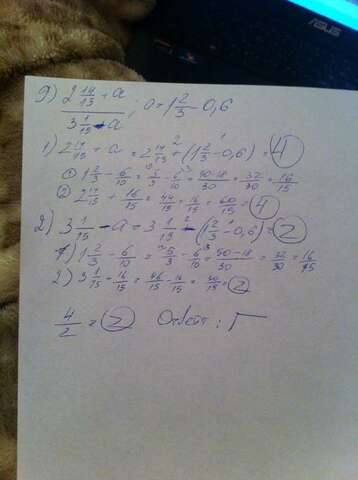 ASUS
9) (2 14/15 + a)/(3 1/15 - a) ; a = 1 2/3 - 0,6
1) 2 14/15 + a = 2 14/15 + (1 2/3 - 0,6) = 4
① 1 2/3 - 6/10 = 5/3 - 6/10 = 50-18/30 = 32/30 = 16/15
② 2 14/15 + 16/15 = 44/15 + 16/15 = 60/15 = 4
2) 3 1/15 - a = 3 1/15 - (1 2/3 - 0,6) = 2
1) 1 2/3 - 6/10 = 5/3 - 6/10 = 50-18/30 = 32/30 = 16/15
2) 3 1/15 - 16/15 = 46/15 - 16/15 = 30/15 = 2
4/2 = 2 Ответ: Г